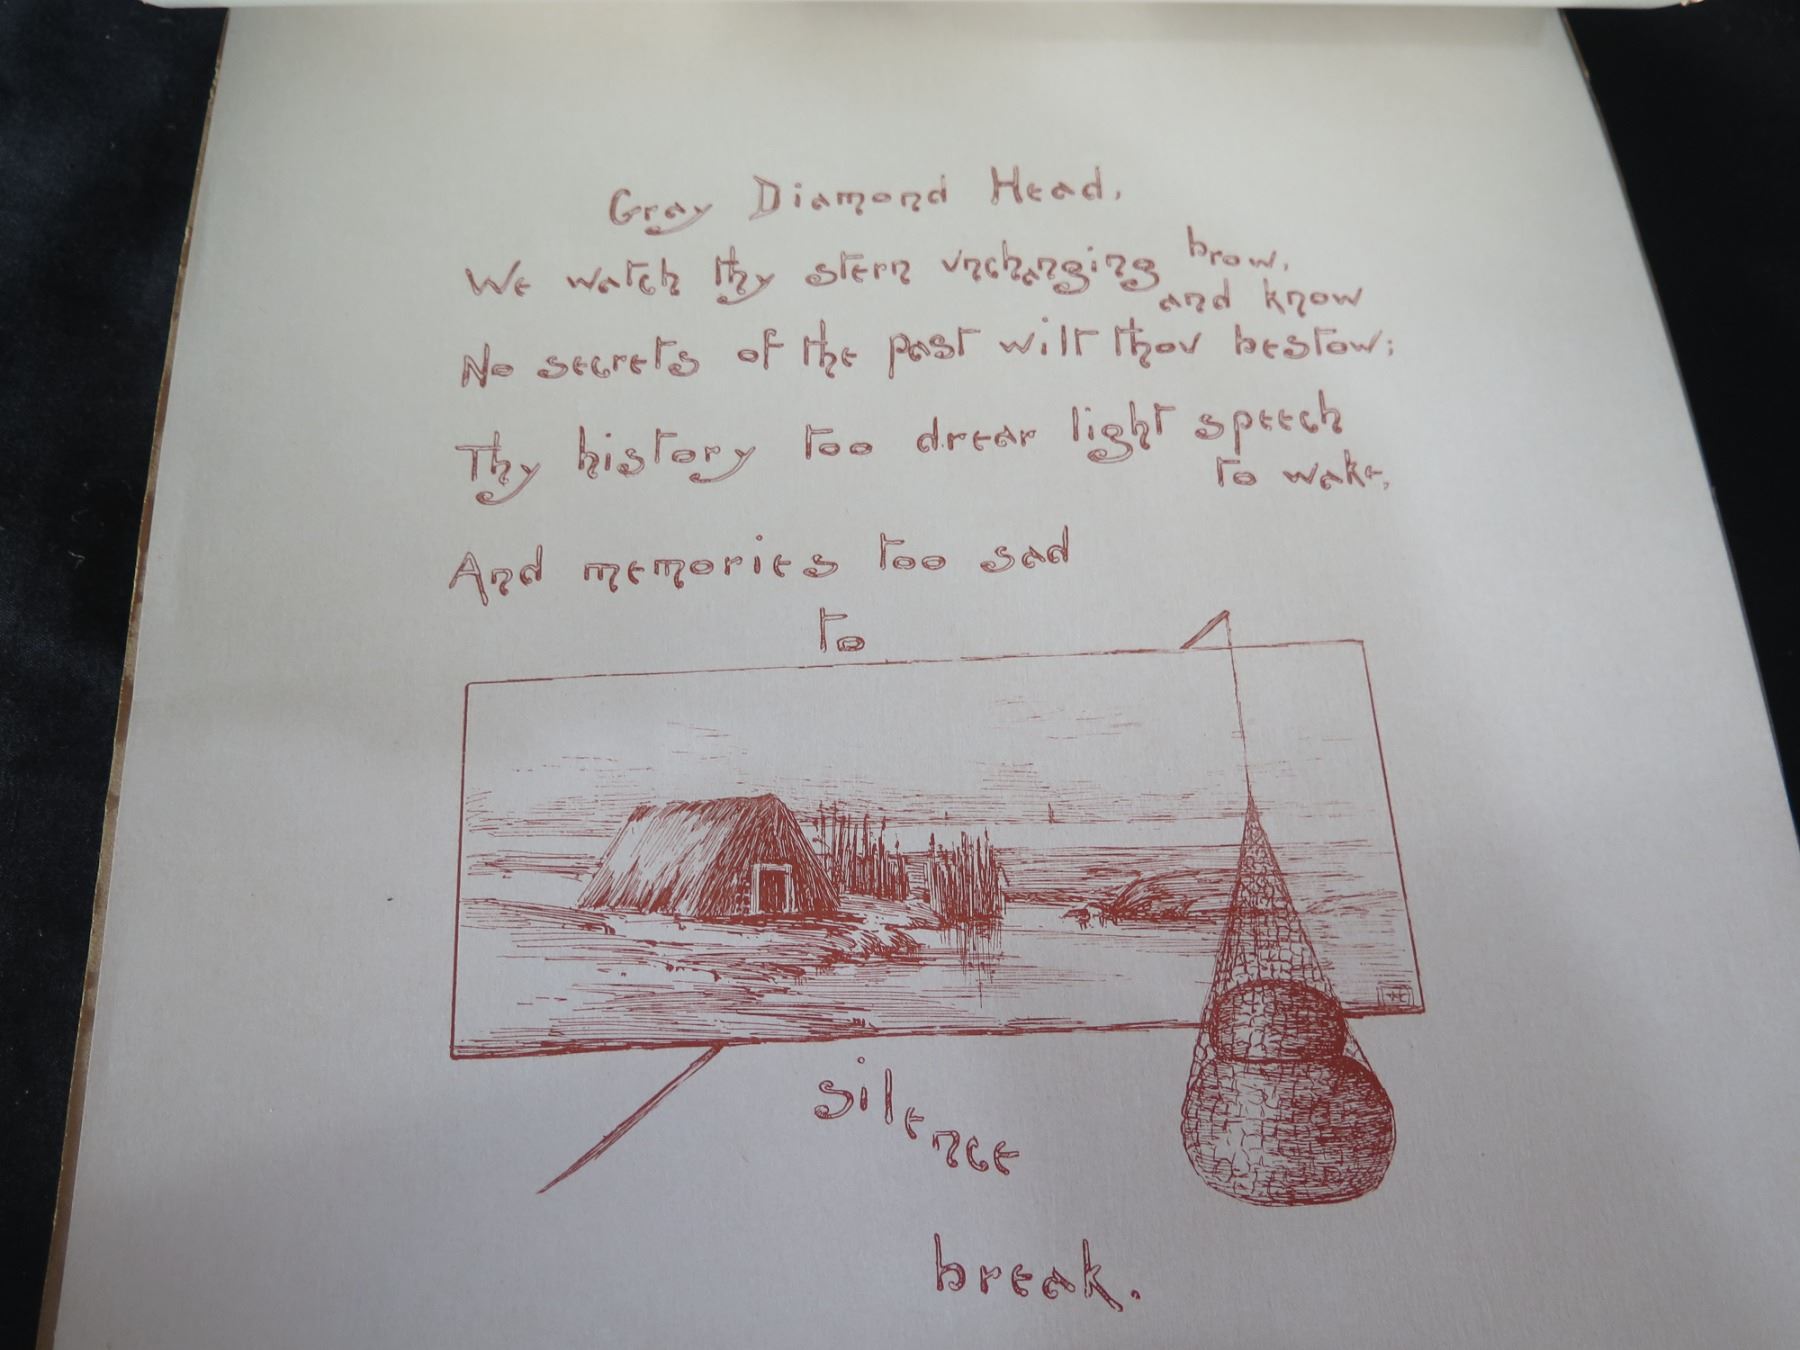 Gray Diamond Head,
We watch thy stern unchanging brow,
and know
No secrets of the past wilt thou bestow;
Thy history too drear light speech
to wake,
And memories too sad
to
silence
break.